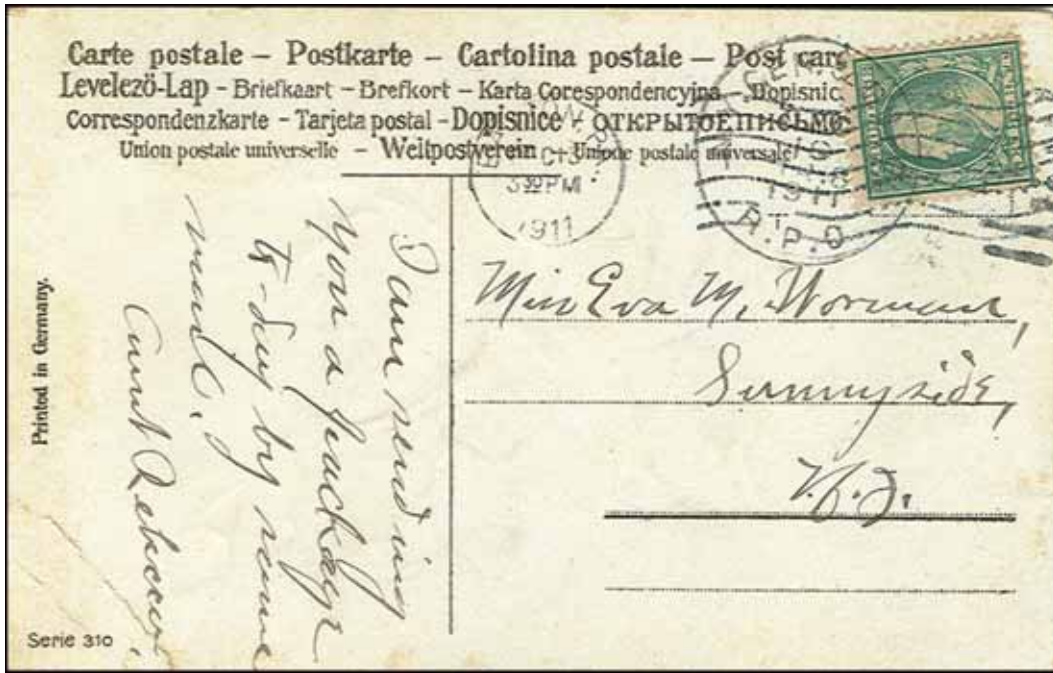 Carte postale – Postkarte – Cartolina postale – Post card
Levelezö-Lap - Briefkaart - Brefkort - Karta Corespondencyjna - Dopisnic
Correspondenzkarte - Tarjeta postal - Dopisnice - ОТКРЫТОЕ ПИСЬМО
Union postale universelle – Weltpostverein – Unione postale universale
3 30 PM
1911
1911
R.P.O
Miss Eva M. Worman,
Sunnyside,
N.J.
I am sending
you a package
to-day by same
mail.
Aunt Rebecca.
Printed in Germany.
Serie 310